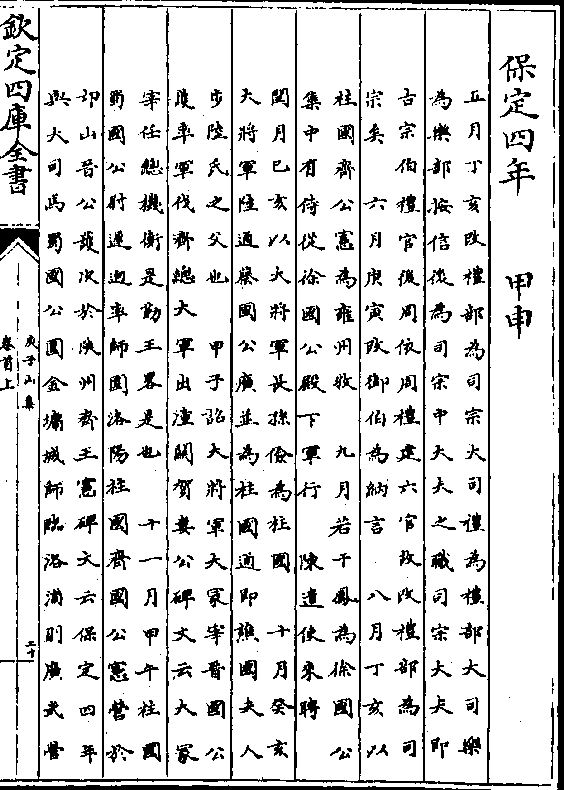 保定四年 甲申
五月丁亥改禮部為司宗大司禮為禮部大司樂
為樂部按信後為司宗中大夫之職司宗大夫即
古宗伯禮官後周依周禮建六官故改禮部為司
宗矣 六月庚寅改御伯為納言 八月丁亥以
柱國齊公憲為雍州牧 九月若干鳳為徐國公
集中有侍從徐國公殿下軍行 陳遣使來聘
閏月己亥以大將軍長孫儉為柱國 十月癸亥
大將軍陸通蔡國公廣並為柱國通即譙國夫人
步陸氏之父也 甲子詔大將軍大冢宰晉國公
護率軍伐齊總大軍出潼關賀婁公碑文云大冢
宰任總機衡是勤王畧是也 十一月甲午柱國
蜀國公尉遲迥率師圍洛陽柱國齊國公憲營於
邙山晉公護次於陝州齊王憲碑文云保定四年
與大司馬蜀國公圍金墉城師臨洛浦則廣武營
欽定四庫全書
庾子山集
卷首上
二十